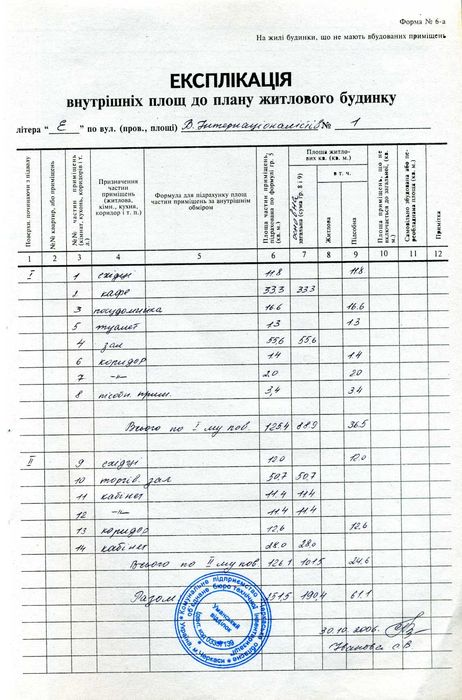 Форма № 6-а
На жилі будинки, що не мають вбудованих приміщень
ЕКСПЛІКАЦІЯ
внутрішніх площ до плану житлового будинку
літера " Е " по вул. (пров., площі) В. Інтернаціоналістів № 1
Поверхи, починаючи з підвалу
№№ квартир, або приміщень
№№ частин приміщень (кімнат, кухонь, коридорів і т. п.)
Призначення частин приміщень (житлова, кімн., кухня, коридор і т. п.)
Формула для підрахунку площ частин приміщень за внутрішнім обміром
Площа частин приміщень, підрахована по формулі гр. 5 (кв. м.)
Площа житлових кв. (кв. м.)
основна
загальна (сума гр. 8 і 9)
в т. ч.
Житлова
Підсобна
Площа приміщень, що не включається до загальної, (кв. м.)
Самовільно збудована або переобладнана площа (кв. м.)
Примітка
1 2 3 4 5 6 7 8 9 10 11 12
I 1 східці 11.8 11.8
2 кафе 33.3 33.3
3 посудомийка 16.6 16.6
5 туалет 1.3 1.3
4 зал 55,6 55,6
6 коридор 1.4 1.4
7 -"- 2.0 2.0
8 підсобн. прим. 3,4 3.4
Всього по I му пов. 125.4 88.9 36.5
II 9 східці 12.0 12.0
10 торгів. зал 50,7 50,7
11 кабінет 11.4 11.4
12 -"- 11.4 11.4
13 коридор 12.6 12.6
14 кабінет 28.0 28,0
Всього по II му пов 126.1 101.5 24.6
Разом 251.5 190,4 61.1
Уманський відділок
30.10.2006.